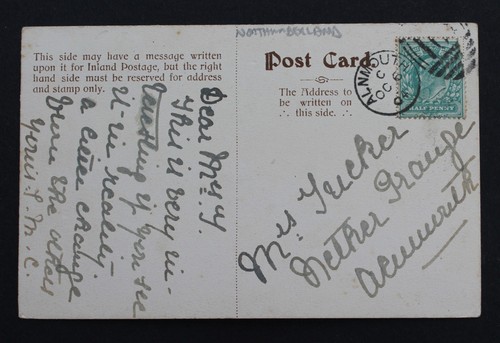 NORTHUMBERLAND
This side may have a message written
upon it for Inland Postage, but the right
hand side must be reserved for address
and stamp only.
Post Card
The Address to
be written on
this side.
ALNMOUTH
C
OC 6
HALF PENNY
Dear Mrs Y.
This is very in-
teresting if you see
it in reality
a nice change
from the others
Yours L. M. C.
Mrs Tucker
Nether Grange
Alnmouth